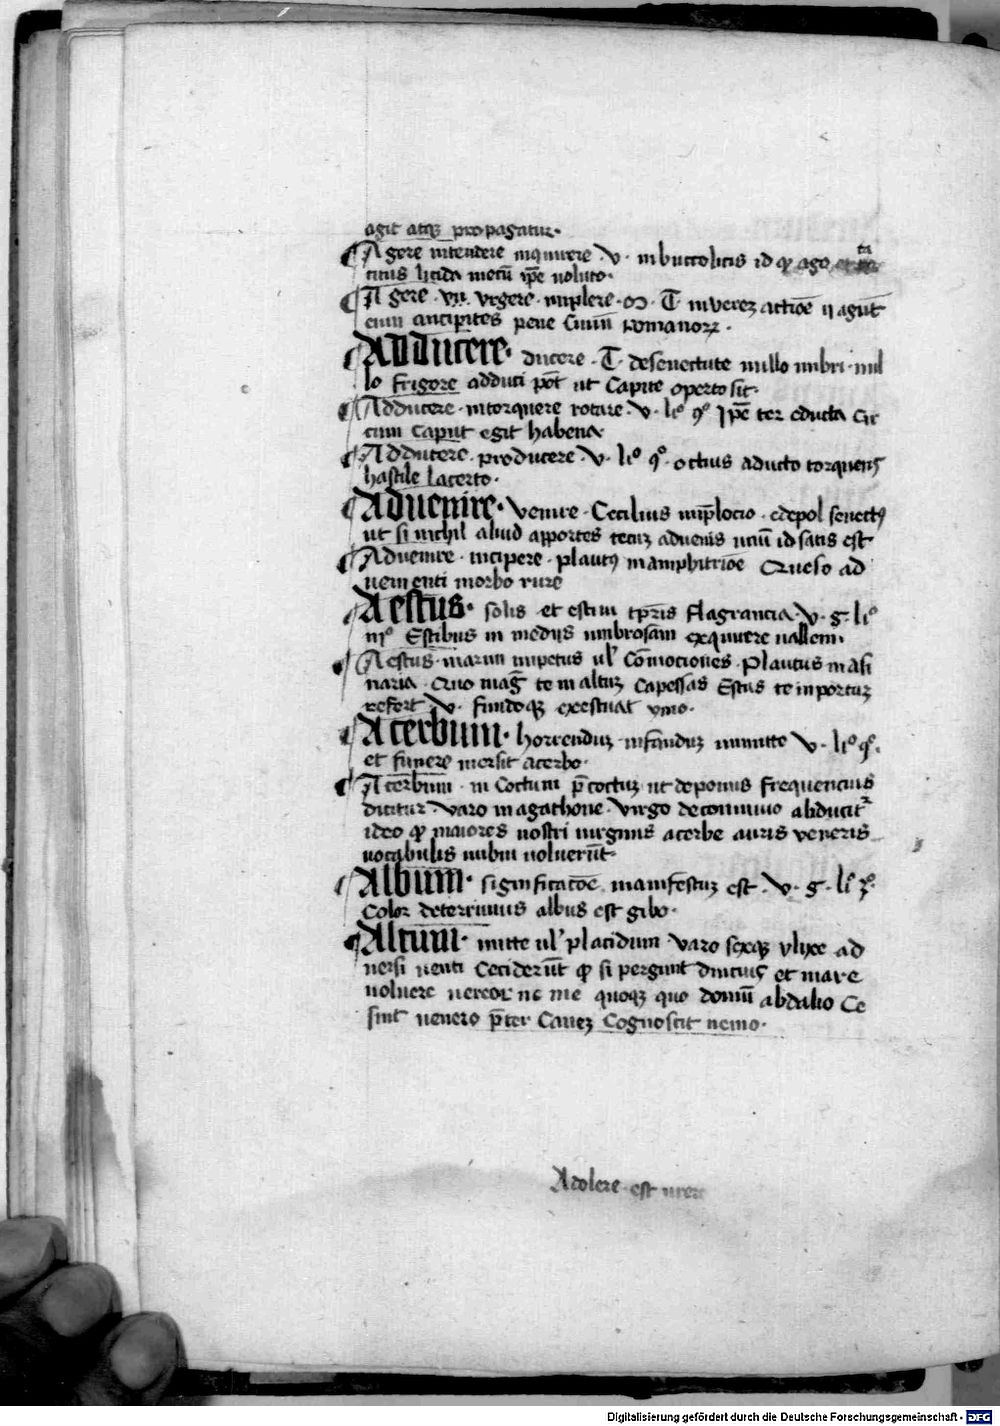 agit atqꝫ propagatur·
¶ Agere intendere inquirere · v · in buccolicis id qͥ ago et ta
citus licida mecū ip̄e voluto·
¶ Agere · vrgere · implere · T · in verez actiōe ij agūt
cum ancipites pene Ciuiū romanorꝝ ·
¶ Adducere · ducere · T · de senectute nullo imbri · nul
lo frigore adduci pōt ut Capite operto sit·
¶ Adducere · intorquere rotare · v · liº 9º Ip̄e ter educta Cir
cum Caput egit habena·
¶ Adducere · producere · v · liº 9º · octius aducto torquens
hastile lacerto·
¶ Aduenire · venire · Cecilius in p̄locio · edepol senectꝰ
ut si nichil aliud apportes tecuꝫ aduenis uciū id satis est
¶ Aduenire · incipere · plautꝰ in amphitriōe Queso ad
uenienti morbo rure
¶ Aestus · solis et estiui tp̄ris flagrancia · v · g · liº
iijº Estibus in medijs umbrosam exquirere vallem·
¶ Aestus · maximi impetus ul' Cōmociones · Plautus in asi
naria · Quo maḡ te in altuꝫ Capessas Estus te in portuꝫ
refert · v · fundoqꝫ exestuat ymo·
¶ Acerbum · horrenduꝫ · infanduꝫ immitte · v · liº qº·
et funere mersit acerbo·
¶ Acerbum · in Coctum p̄coctuꝫ · ut de pomis frequencius
dicitur · varo in agathone · virgo de conuiuio abducit᷑
ideo qͥ maiores nostri virginis acerbe auris veneris
vocabulis imbui noluerūt·
¶ Album · significatōe manifestuꝫ est · v · g · liº ꝫº·
Color deterrimus albus est giluo·
¶ Altum · mitte ul' placidum · varo sexqꝫ vlixe ad
uersi venti Ceciderūt qͥ si pergunt diucius et mare
voluere uereor ne me quoqꝫ quo domū ab dalio Ce
sint uenero p̄ter Caneꝫ Cognoscit nemo·
Adolere · est urere